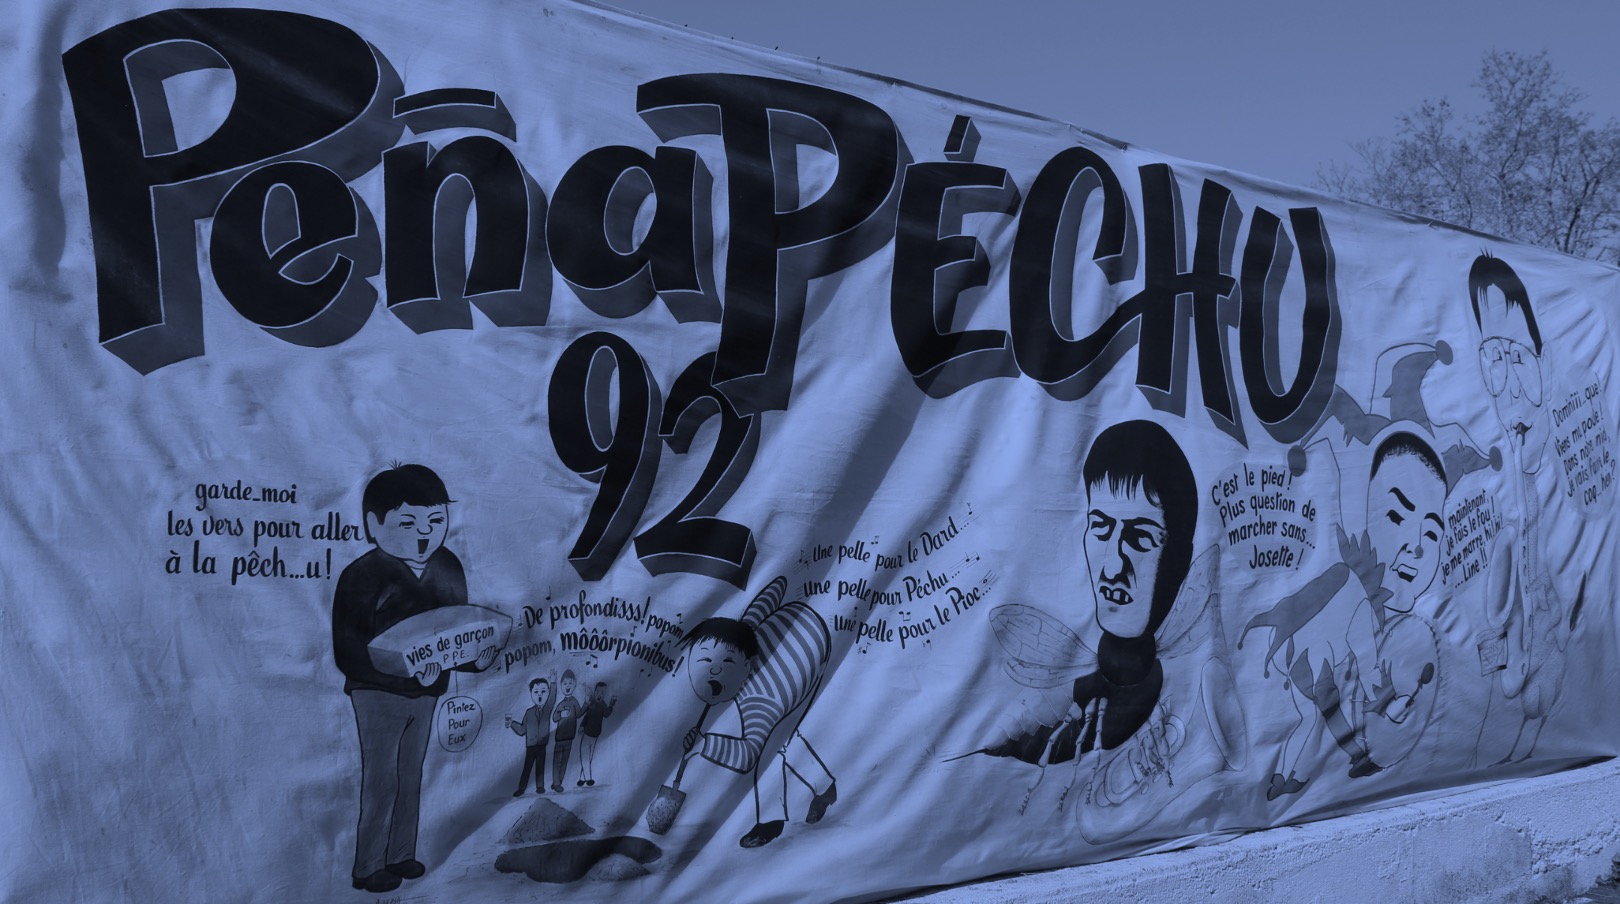 Peña PÉCHU
92
garde-moi
les vers pour aller
à la pêch...u!
vies de garçon
P.P.E.
Pintez
Pour
Eux
De profondisss! popom,
popom, môôôrpionibus!
Une pelle pour le Dard...
une pelle pour Péchu...
Une pelle pour le Pioc...
C'est le pied!
Plus question de
marcher sans...
Josette!
maintenant,
je fais le fou!
je me marre hi! hi!
...Line!!
Dominiii...que!
Viens ma poule!
Dans notre nid,
je vais faire le
coq... hein?